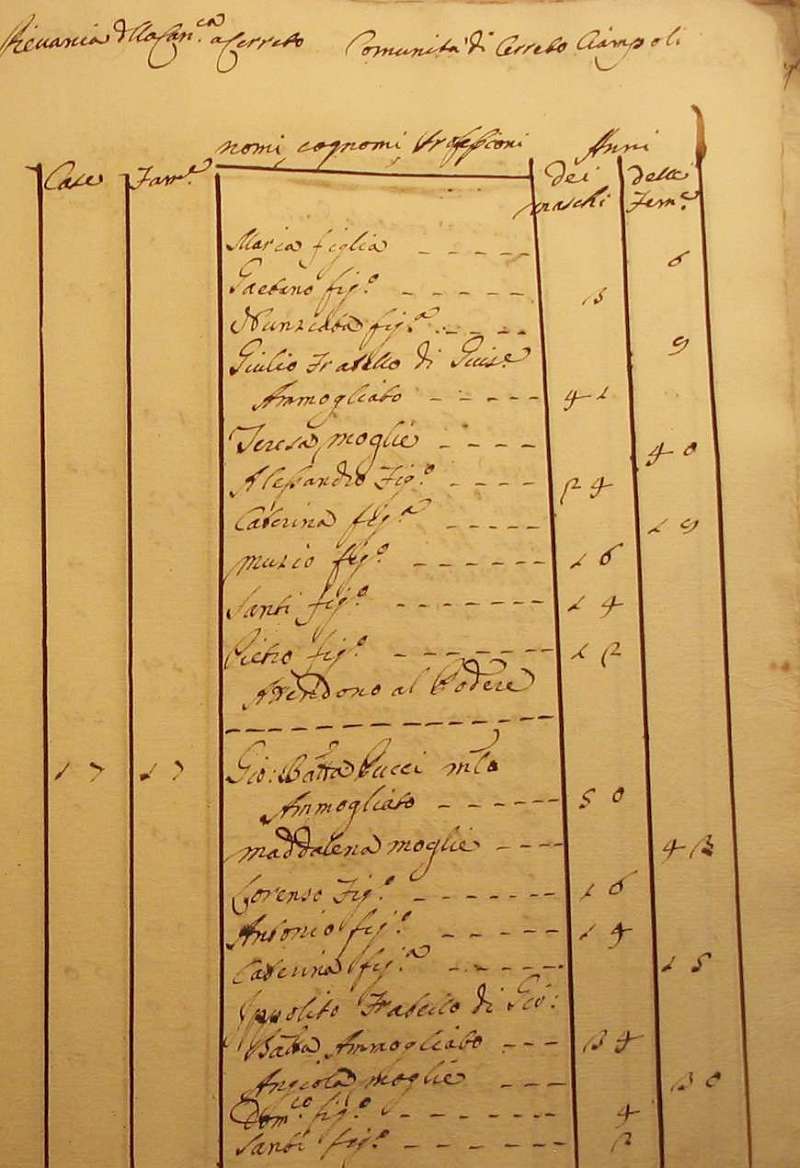 Pievania della Can.ca a Cerreto Comunità di Cerreto Ciampoli
nomi, cognomi, professioni Anni
Case Fam.e dei delle
maschi Fem.e
Maria figlia 6
Gaetano fig.o 3
Nunziata fig.a 9
Giulio Fratello di Guis.e
Ammogliato 41
Teresa moglie 40
Alessandro Fig.o 24
Caterina fig.a 19
Muzio fig.o 16
Santi fig.o 14
Pietro fig.o 12
Attendono al Podere
17 17 Gio: Batta Pucci
Ammogliato 50
Maddalena moglie 43
Lorenso Fig.o 16
Antonio fig.o 14
Caterina fig.a 15
Ippolito Fratello di Gio:
Batta Ammogliato 34
Angiola moglie 30
Dom.co fig.o 4
Santi fig.o 2